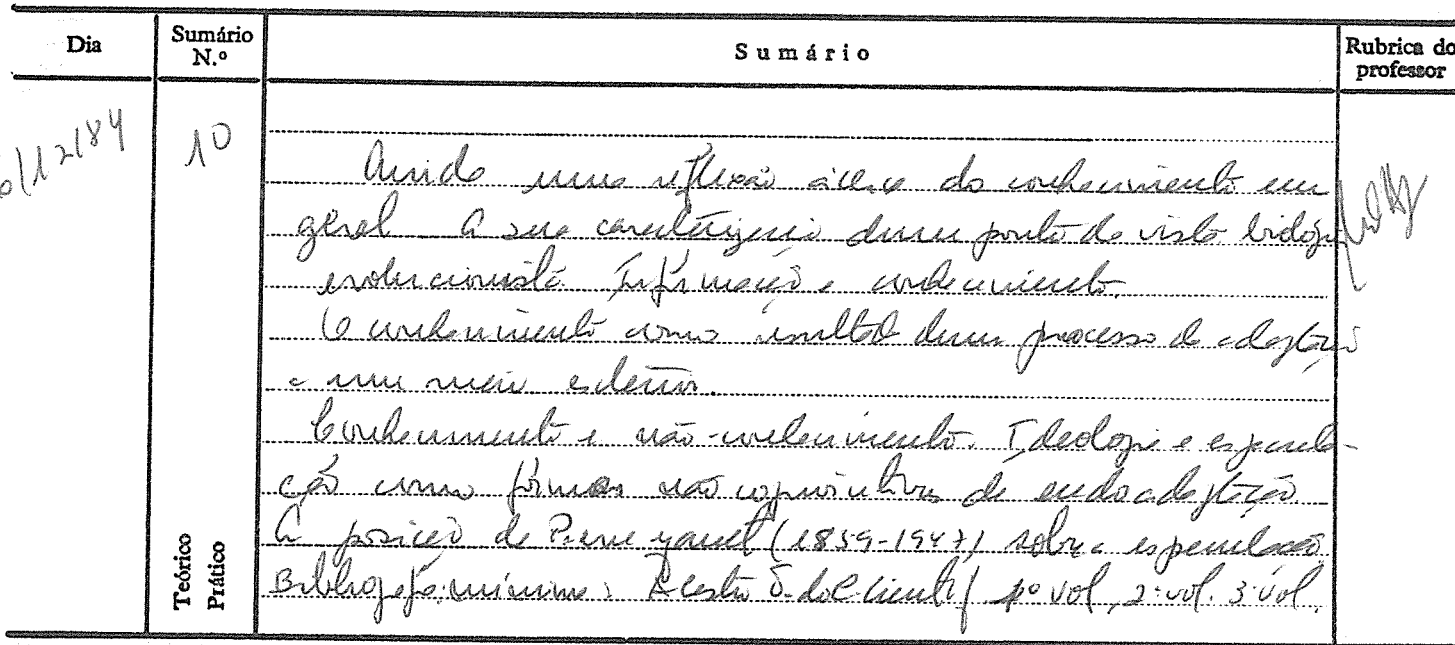 Dia
Sumário N.º
Sumário
Rubrica do professor
/12/84
10
Ainda uma reflexão àcerca do conhecimento em
geral A sua caracterização dum ponto de vista biológi
evolucionista Informação e conhecimento.
O conhecimento como resultado dum processo de adaptação
a um meio exterior.
Conhecimento e não-conhecimento. Ideologia e especula-
ção como formas não cognoscitivas de endoadaptação
A posição de Pierre Janet (1859-1947) sobre a especulação
Bibliografia mínima: 1º vol, 2º vol. 3º vol.
Teórico
Prático